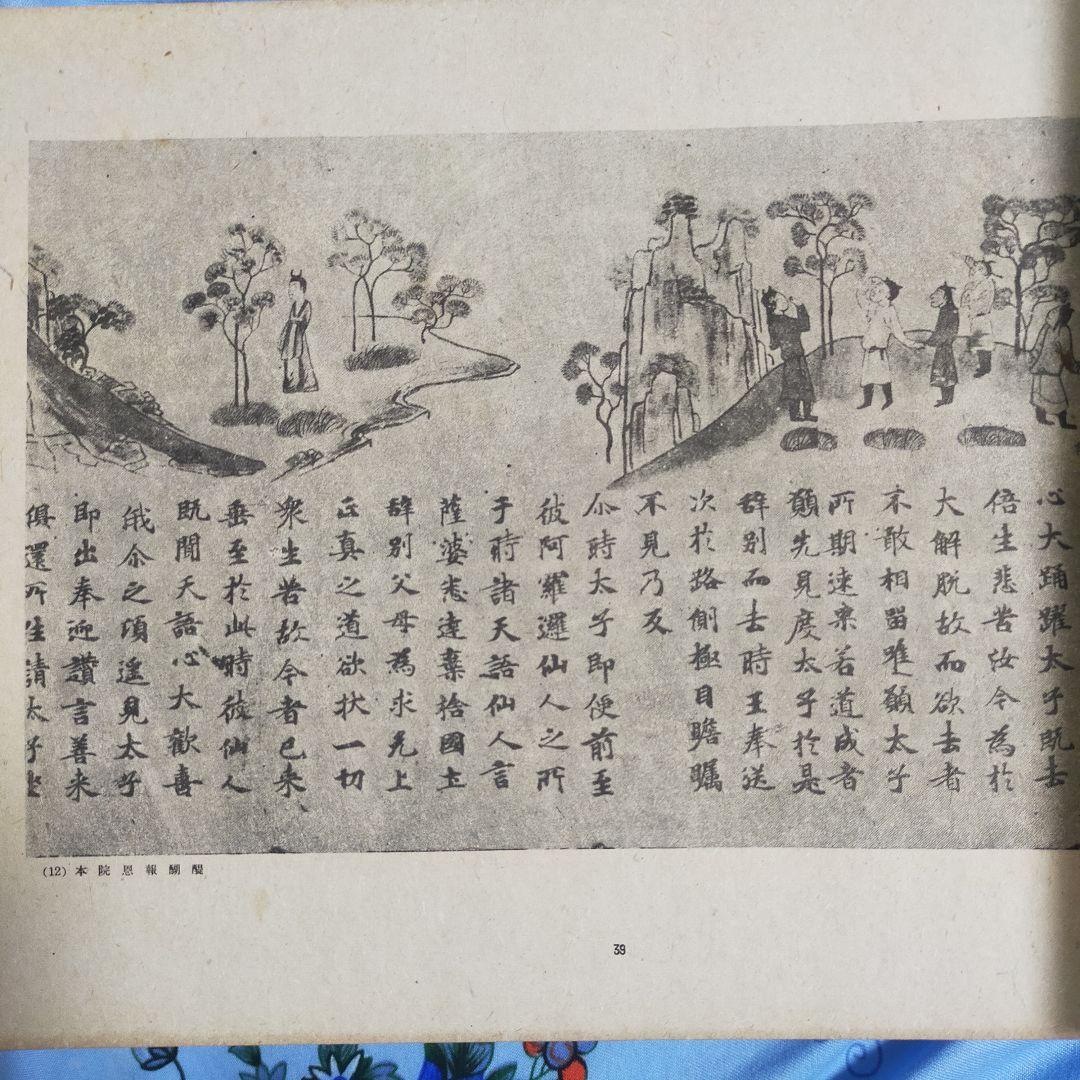 心大踊躍太子既去
倍生悲苦汝今為於
大解脱故而欲去者
不敢相留唯願太子
所期速果若道成者
願先見度太子於是
辞別而去時王奉送
次於路側極目瞻矚
不見乃反
尒時太子即便前至
彼阿羅邏仙人之所
于時諸天語仙人言
薩婆悉達棄捨國土
辞別父母為求无上
正真之道欲状一切
衆生苦故今者已来
垂至於此時彼仙人
既聞天語心大歡喜
俄尒之頃遥見太子
即出奉迎讃言善来
俱還所住請太子坐
(12) 本院恩報醐醍
39